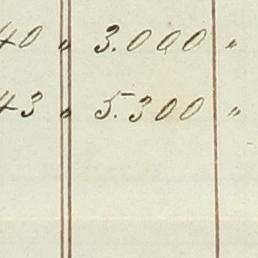 40 " 3.000 "
43 " 5.300 "